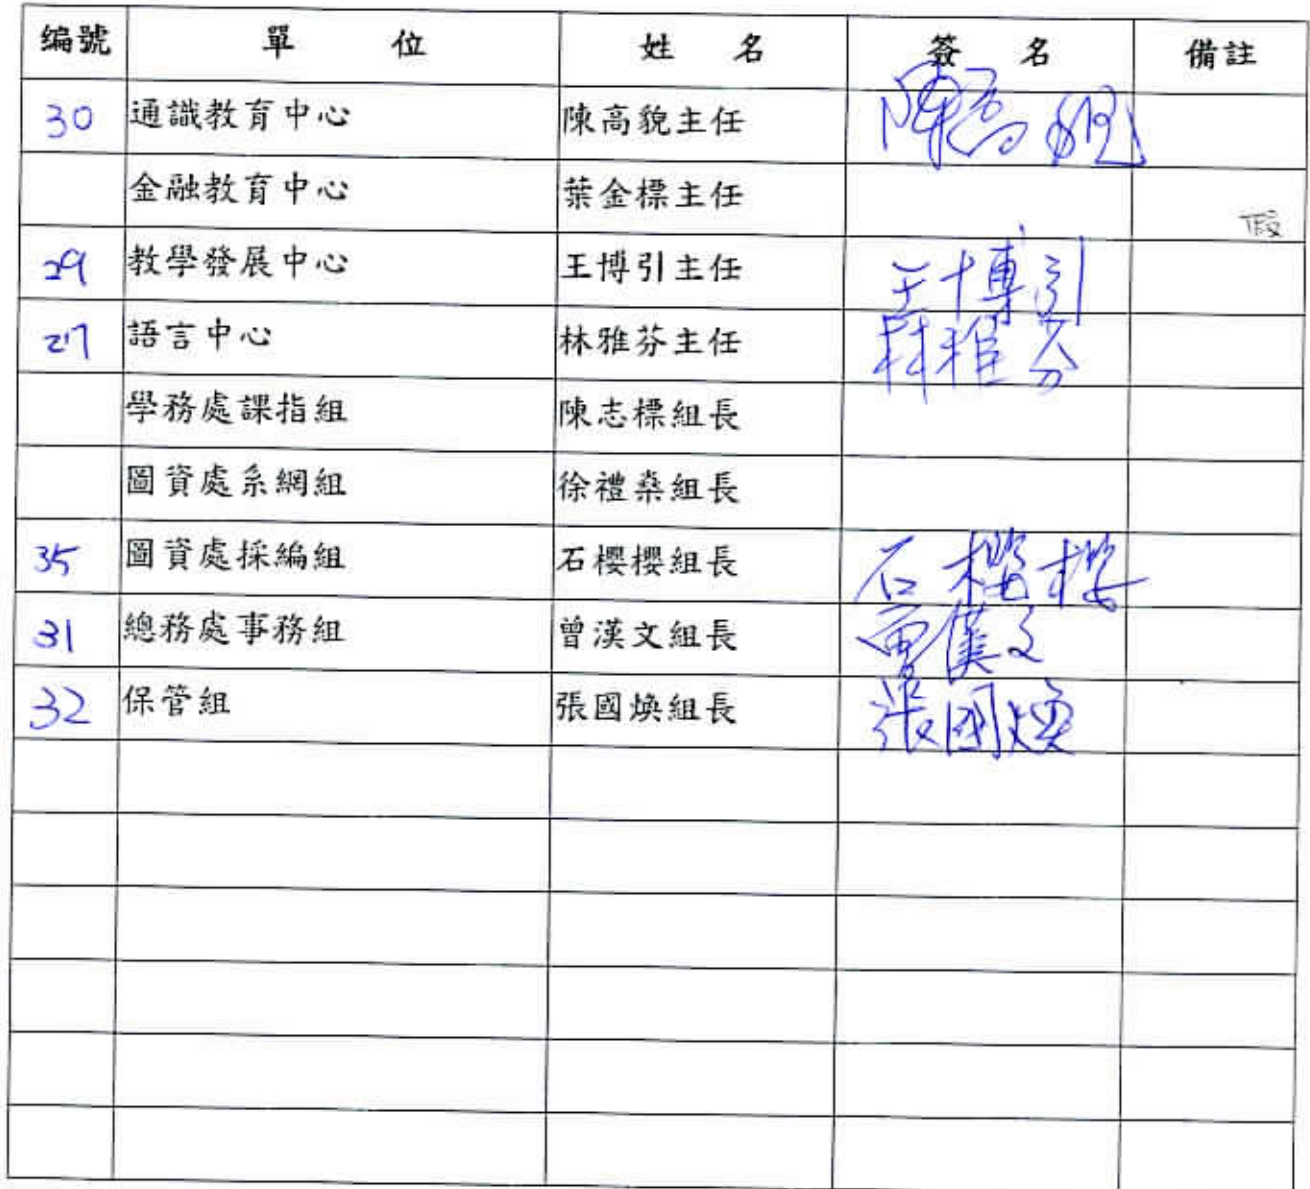 編號 單位 姓名 簽名 備註
30 通識教育中心 陳高貌主任 陳高貌
金融教育中心 葉金標主任 假
29 教學發展中心 王博引主任 王博引
27 語言中心 林雅芬主任 林雅芬
學務處課指組 陳志標組長
圖資處系網組 徐禮桑組長
35 圖資處採編組 石櫻櫻組長 石櫻櫻
31 總務處事務組 曾漢文組長 曾漢文
32 保管組 張國煥組長 張國煥